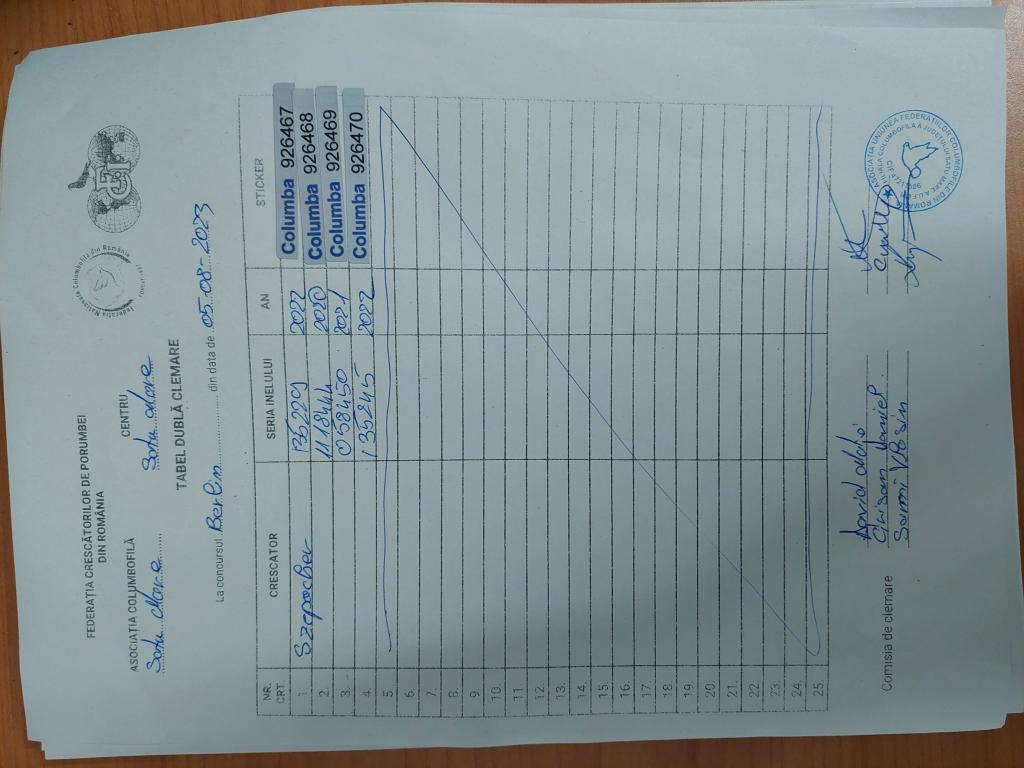 FEDERAȚIA CRESCĂTORILOR DE PORUMBEI
DIN ROMÂNIA
Federația Națională Columbofilă din România
ASOCIAȚIA COLUMBOFILĂ CENTRU
Satu Mare Satu Mare
TABEL DUBLĂ CLEMARE
La concursul Berlin din data de 05-08-2023
NR. CRT. CRESCATOR SERIA INELULUI AN STICKER
1. 1352291 2022 Columba 926467
2. 1118444 2020 Columba 926468
3. 058450 2021 Columba 926469
4. 135245 2022 Columba 926470
5.
6.
7.
8.
9.
10.
11
12.
13.
14.
15.
16.
17.
18
19
20.
21.
22
23.
24.
25.
Comisia de clemare
David
Daniel
ASOCIAȚIA UNIUNEA FEDERAȚIILOR COLUMBOFILE DIN ROMÂNIA
FILIALA COLUMBOFILĂ A JUDEȚULUI SATU MARE A U.F.C.R.